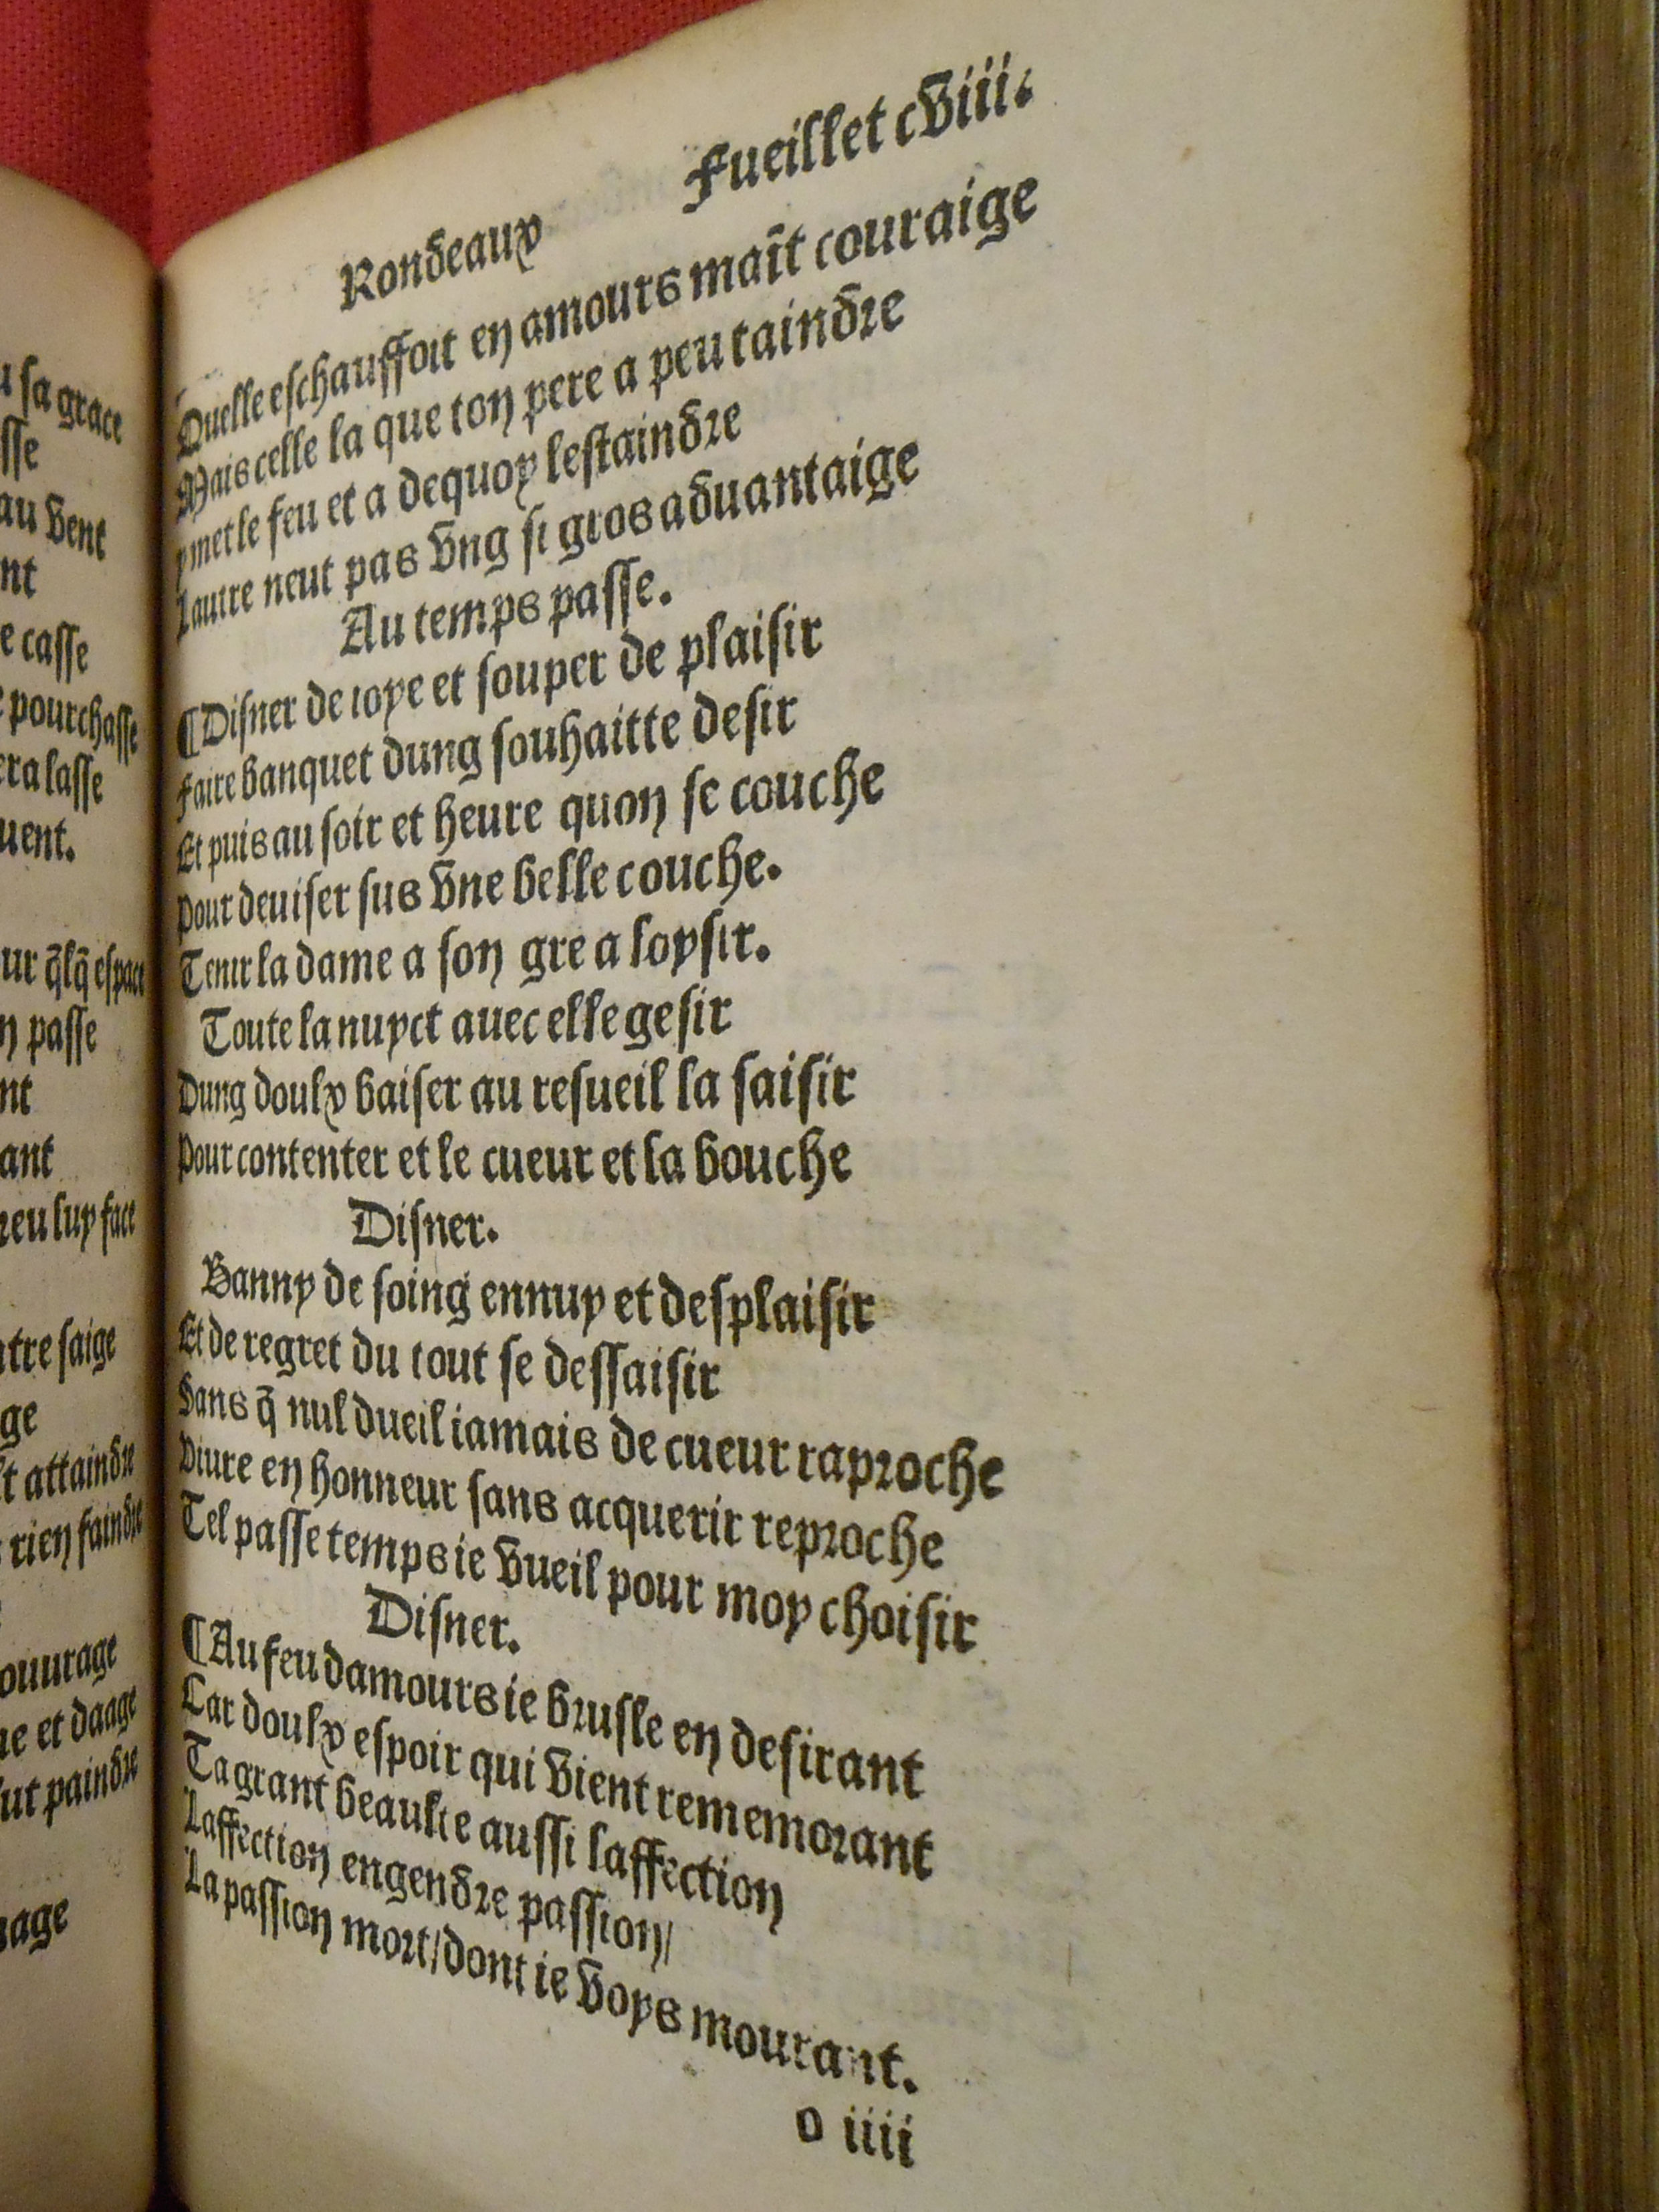 u sa grace
sse
au vent
nt
e casse
e pourchasse
era lasse
uent.
ur q̃lq̃ espace
n passe
nt
ant
reu luy face
ntre saige
ge
st attaindre
rien faindre
ouurage
ue et daage
ut paindre
age
Rondeaux Fueillet cviii.
Quelle eschauffoit en amours maĩt couraige
Mais celle la que ton pere a peu taindre
y met le feu et a dequoy lestaindre
Lautre neut pas vng si gros aduantaige
Au temps passe.
¶Disner de ioye et souper de plaisir
Faire banquet dung souhaitte desir
Et puis au soir et heure quon se couche
Pour deuiser sus vne belle couche.
Tenir la dame a son gre a loysir.
Toute la nuyct auec elle gesir
Dung doulx baiser au resueil la saisir
Pour contenter et le cueur et la bouche
Disner.
Banny de soing ennuy et desplaisir
Et de regret du tout se dessaisir
Sans q̃ nul dueil iamais de cueur raproche
Viure en honneur sans acquerir reproche
Tel passetemps ie vueil pour moy choisir
Disner.
¶Au feu damours ie brusle en desirant
Car doulx espoir qui vient rememorant
Ta grant beaulte aussi laffection
Laffection engendre passion/
La passion mort/dont ie voys mourant.
o iiii